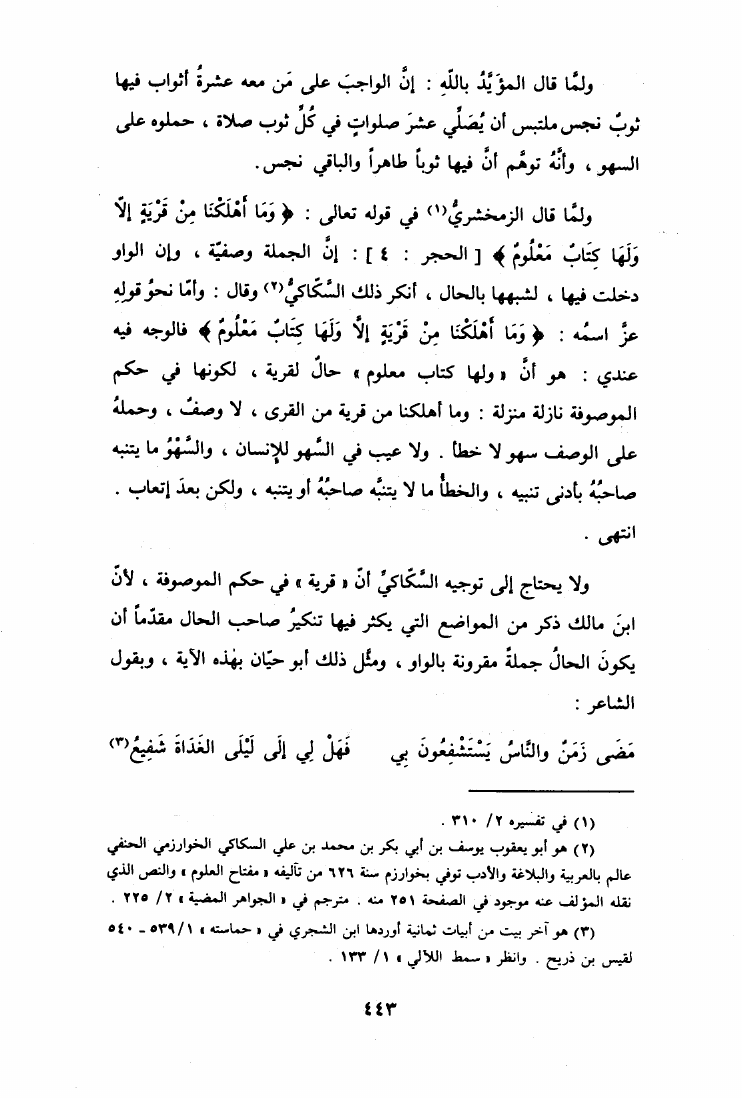 ولمَّا قال المؤَيَّدُ باللّهِ : إنَّ الواجبَ على مَن معه عشرةُ أثواب فيها
ثوبٌ نجس ملتبس أن يُصَلِّي عشرَ صلواتٍ في كُلِّ ثوب صلاة ، حملوه على
السهو ، وأنَّهُ توهَّم أنَّ فيها ثوباً طاهراً والباقي نجس.
ولمَّا قال الزمخشريُّ(١) في قوله تعالى : ﴿ وَمَا أَهْلَكْنَا مِنْ قَرْيَةٍ إلاّ
وَلَهَا كِتَابٌ مَعْلُومٌ ﴾ [ الحجر : ٤ ] : إنَّ الجملة وصفيّة ، وإن الواو
دخلت فيها ، لشبهها بالحال ، أنكر ذلك السَّكّاكيُّ(٢) وقال : وأمّا نحوُ قولِهِ
عزَّ اسمُه : ﴿ وَمَا أَهْلَكْنَا مِنْ قَرْيَةٍ إلاَّ وَلَهَا كِتَابٌ مَعْلُومٌ ﴾ فالوجه فيه
عندي : هو أنَّ « ولها كتاب معلوم » حالٌ لقرية ، لكونها في حكم
الموصوفة نازلة منزلة : وما أهلكنا من قرية من القرى ، لا وصفٌ ، وحملهُ
على الوصف سهو لا خطأ . ولا عيب في السَّهو للإنسان ، والسَّهْوُ ما يتنبه
صاحبُهُ بأدنى تنبيه ، والخطأُ ما لا يتنبَّه صاحبُهُ أو يتنبه ، ولكن بعدَ إتعاب .
انتهى .
ولا يحتاج إلى توجيه السَّكّاكيِّ أنّ « قرية » في حكم الموصوفة ، لأنّ
ابنَ مالك ذكر من المواضع التي يكثر فيها تنكيرُ صاحب الحال مقدّماً أن
يكونَ الحالُ جملةً مقرونة بالواو ، ومثَّل ذلك أبو حيّان بهٰذه الآية ، وبقول
الشاعر :
مَضَى زَمَنٌ والنَّاسُ يَسْتَشْفِعُونَ بِي فَهَلْ لِي إلَى لَيْلَى الغَدَاةَ شَفِيعُ(٣)
(١) في تفسيره ٢/ ٣١٠ .
(٢) هو أبو يعقوب يوسف بن أبي بكر بن محمد بن علي السكاكي الخوارزمي الحنفي
عالم بالعربية والبلاغة والأدب توفي بخوارزم سنة ٦٢٦ من تآليفه « مفتاح العلوم » والنص الذي
نقله المؤلف عنه موجود في الصفحة ٢٥١ منه . مترجم في « الجواهر المضية » ٢/ ٢٢٥ .
(٣) هو آخر بيت من أبيات ثمانية أوردها ابن الشجري في « حماسته » ١/ ٥٣٩ ـ ٥٤٠
لقيس بن ذريح . وانظر « سمط اللآلي » ١/ ١٣٣ .
٤٤٣